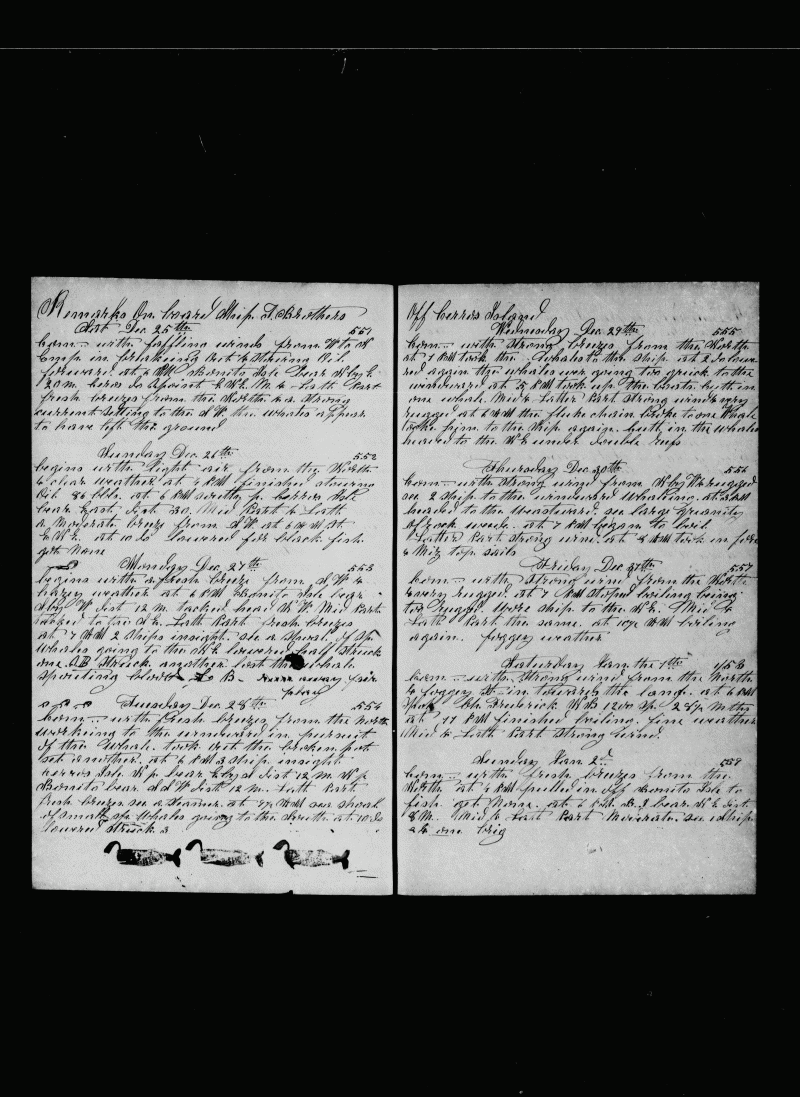 Remarks On board Ship T. Brothers
Sat Dec 25th 551
com— with baffling winds from W to N
Emp in breaking out & stowing Oil
forward. at 6 PM Bonito Isle bear N by E
20 m. Cerros Isle
& Lath Part
fresh breezes from the North & a strong
current setting to the SW the whales appear
to have left the ground
Sunday Dec 26th 552
begins with light air from the North
& clear weather at 4 PM finished stowing
Oil 86 bbls. at 6 PM Cerros Isle
bear East dist 30. Mid Part & Lath
a Moderate breeze from SW.
at 10 do lowered for black fish
got None
Monday Dec 27th 553
begins with a fresh breeze from NW &
hazey weather at 6 PM Bonito Isle bear
by W dist 12 m. tacked head SW Mid Part
tacked to the NE. Lath Part fresh breezes
at 7 AM 2 Ships insight. see a Shoal of Sp
whales going to the NE lowered
one. SB Struck another lost the whale
spouting blood LB— away fair
play
Tuesday Dec 28th 554
com— with fresh breezes from the North
working to the windward in pursuit
of the whale. took out the broken
set another. at 6 PM 3 ship insight
Cerros Isle bear dist 12 m.
Bonito bear dist 12 m. Lath Part
fresh breezes see a Steamer at AM see shoal
of small sp whales going to the South at 10 do
lowered Struck 3
Off Cerros Island
Wednesday Dec 29th 555
com— with Strong breezes from the North
at 1 PM took the whales to the ship. at 2 do lowe
red again the whales was going too quick to the
windward at 5 PM took up the boats cutt in
one whale. Mid & Latter Part strong wind & very
rugged at 6 AM the fluke chain broke to one whale
took him to the Ship again. cutt in the whales
headed to the NE under double reefs
Thursday Dec 30th 556
com— with strong wind from N by W & rugged
see 2 ship to the windward Whaleing. at
headed to the Westward. see large Quantity
of rock weed. at 7 PM began to boil
Latter Part strong wind. at 8 AM took in fore
& Miz top sails
Friday Dec 31th 557
com— with strong wind from the North
& very rugged. at 7 PM stoped boiling being
too rugged. Wore ship to the NE. Mid &
Lath Part the same. at AM boiling
again. foggey weather
Saturday Jan the 1th 558
com— with Strong wind from the North
& foggey St in towards the land. at 6 PM
Spok Bk Frederick NB 1200 sp. 28½ Mths
at 11 PM finished boiling. fine weather
Mid & Lath Part Strong wind.
Sunday Jan 2d 559
com— with fresh breezes from the
North at 4 PM pulled in Off Bonito Isle to
fish got None. at 6 PM bear dist
8 M. Mid & Last Part Moderate. see 1 Ship
& one brig